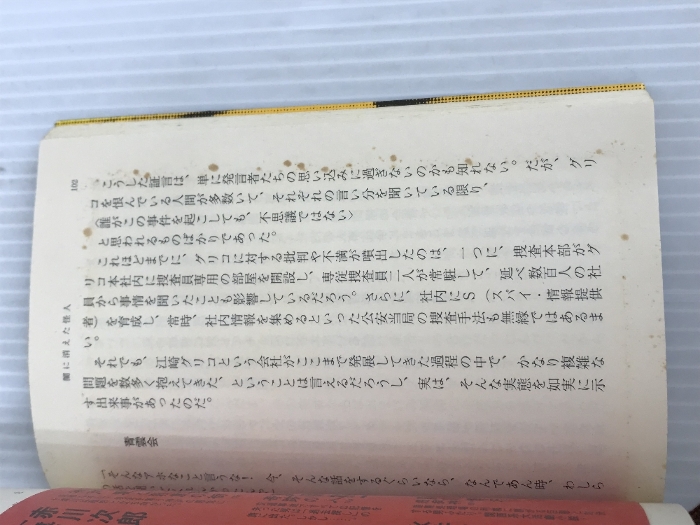 102
闇に消えた怪人
こうした証言は、単に発言者たちの思い込みに過ぎないのかも知れない。だが、グリ
コを恨んでいる人間が多数いて、それぞれの言い分を聞いている限り、
〈誰がこの事件を起こしても、不思議ではない〉
と思われるものばかりであった。
これほどまでに、グリコに対する批判や不満が噴出したのは、一つに、捜査本部がグ
リコ本社内に捜査員専用の部屋を開設し、専従捜査員二人が常駐して、延べ数百人の社
員から事情を聞いたことも影響しているだろう。さらに、社内にS（スパイ・情報提供
者）を育成し、常時、社内情報を集めるといった公安当局の捜査手法も無縁ではあるま
い。
それでも、江崎グリコという会社がここまで発展してきた過程の中で、かなり複雑な
問題を数多く抱えてきた、ということは言えるだろうし、実は、そんな実態を如実に示
す出来事があったのだ。
青雲会
「そんなアホなこと言うな！　今、そんな話をするぐらいなら、なんであん時、わしら
赤川次郎